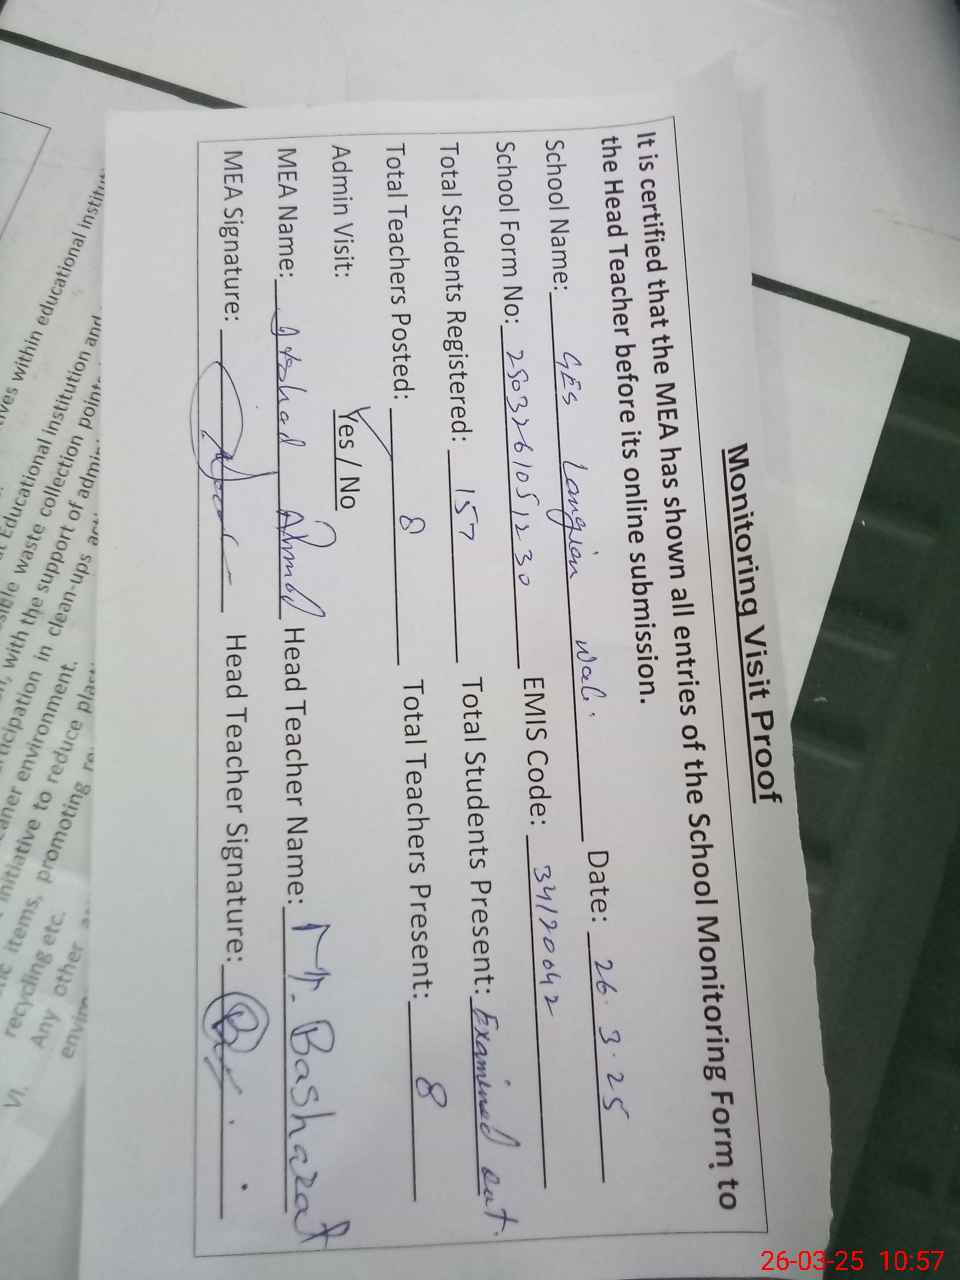 Monitoring Visit Proof
It is certified that the MEA has shown all entries of the School Monitoring Form to
the Head Teacher before its online submission.
School Name: GES Langian Wali Date: 26.3.25
School Form No: 2503261051230 EMIS Code: 34120042
Total Students Registered: 157 Total Students Present: Examined out.
Total Teachers Posted: 8 Total Teachers Present: 8
Admin Visit: Yes / No
MEA Name: Arshad Ahmed Head Teacher Name: Mr. Basharat
MEA Signature: Head Teacher Signature:
ves within educational
Educational institution and
waste collection
with the support of
participation in clean-ups
environment.
initiative to reduce
items, promoting
recycling etc.
VI. Any other
26-03-25 10:57